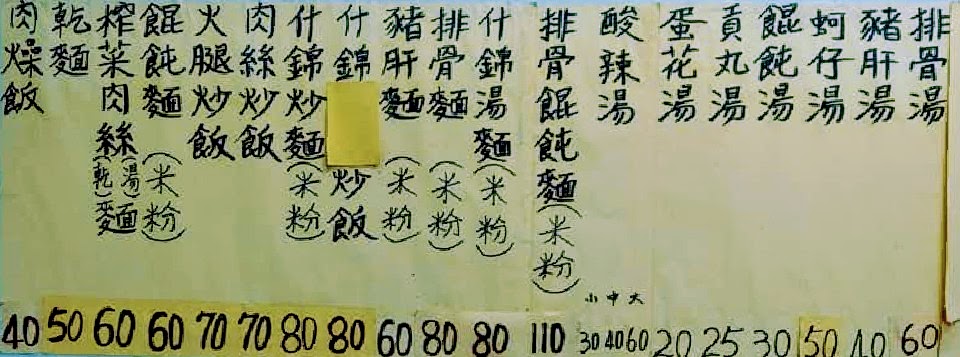 排骨湯 60
豬肝湯 40
蚵仔湯 50
餛飩湯 30
貢丸湯 25
蛋花湯 20
酸辣湯 小中大 30 40 60
排骨餛飩麵(米粉) 110
什錦湯麵(米粉) 80
排骨麵(米粉) 80
豬肝麵(米粉) 60
什錦炒飯 80
什錦炒麵(米粉) 80
肉絲炒飯 70
火腿炒飯 70
餛飩麵(米粉) 60
榨菜肉絲(湯)(乾)麵 60
乾麵 50
肉燥飯 40